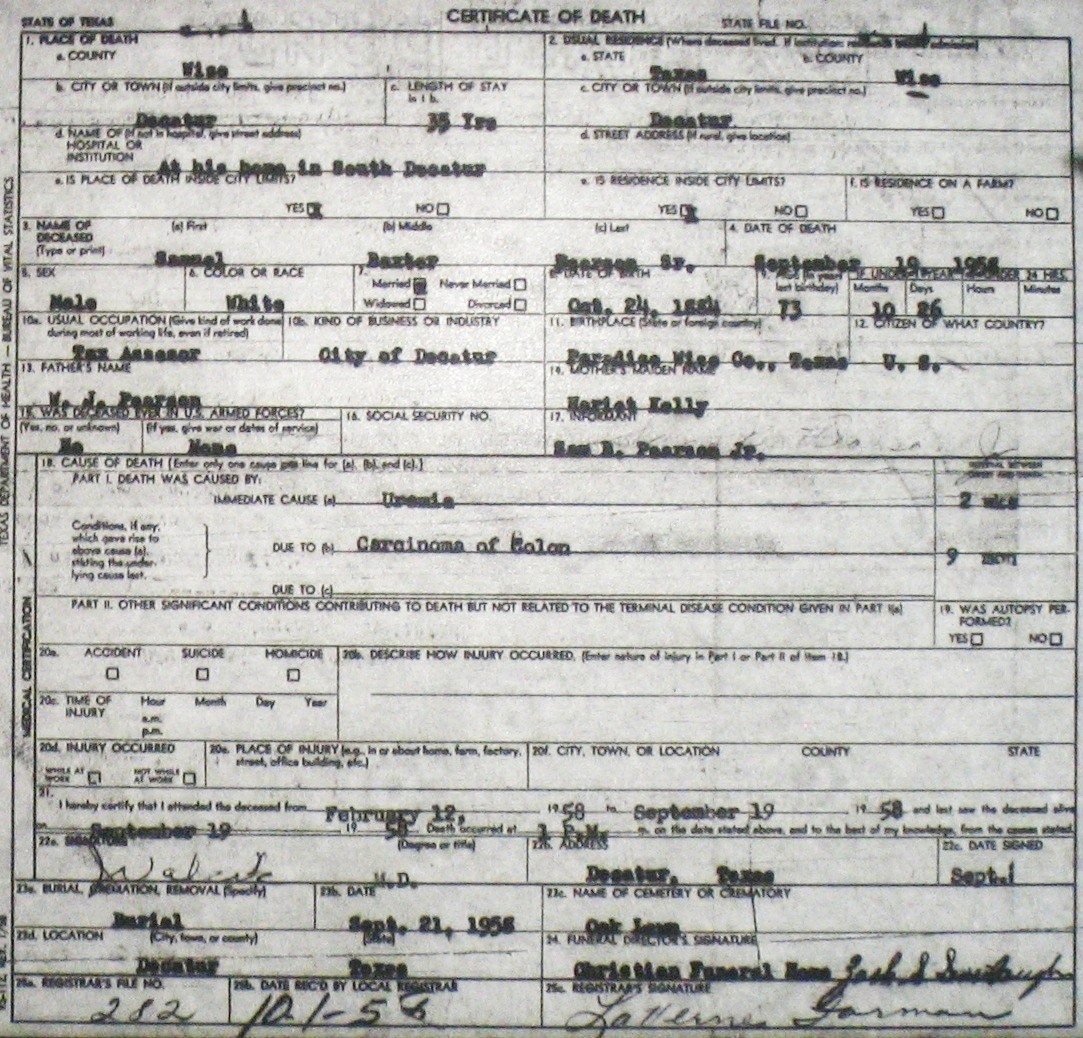 CERTIFICATE OF DEATH
STATE OF TEXAS
STATE FILE NO.
1. PLACE OF DEATH
a. COUNTY
Wise
2. USUAL RESIDENCE (Where deceased lived. If institution: admission)
a. STATE
Texas
b. COUNTY
Wise
b. CITY OR TOWN (If outside city limits, give precinct no.)
Decatur
c. LENGTH OF STAY in 1 b.
35 Yrs
c. CITY OR TOWN (If outside city limits, give precinct no.)
Decatur
d. NAME OF (If not in hospital, give street address)
HOSPITAL OR
INSTITUTION
At his home in South Decatur
d. STREET ADDRESS (If rural, give location)
e. IS PLACE OF DEATH INSIDE CITY LIMITS?
YES X NO
e. IS RESIDENCE INSIDE CITY LIMITS?
YES X NO
f. IS RESIDENCE ON A FARM?
YES NO
3. NAME OF
DECEASED
(Type or print)
(a) First
Samuel
(b) Middle
Baxter
(c) Last
Pearson Sr.
4. DATE OF DEATH
September 19 1958
5. SEX
Male
6. COLOR OR RACE
White
7.
Married Never Married
Widowed Divorced
8. DATE OF BIRTH
Oct. 24, 1884
9. AGE (In years
last birthday)
73
IF UNDER 1 YEAR
Months Days
10 26
IF UNDER 24 HRS.
Hours Minutes
10a. USUAL OCCUPATION (Give kind of work done
during most of working life, even if retired)
Tax Assesor
10b. KIND OF BUSINESS OR INDUSTRY
City of Decatur
11. BIRTHPLACE (State or foreign country)
Paradise Wise Co., Texas
12. CITIZEN OF WHAT COUNTRY?
U. S.
13. FATHER'S NAME
W. J. Pearson
14. MOTHER'S MAIDEN NAME
Hariet Kelly
15. WAS DECEASED EVER IN U.S. ARMED FORCES?
(Yes, no, or unknown)
No
(If yes, give war or dates of service)
None
16. SOCIAL SECURITY NO.
17. INFORMANT
Sam B. Pearson Jr.
18. CAUSE OF DEATH (Enter only one cause per line for (a), (b), and (c).)
PART I. DEATH WAS CAUSED BY:
INTERVAL BETWEEN
ONSET AND DEATH
IMMEDIATE CAUSE (a) Uremia
2 wks
Conditions, if any,
which gave rise to
above cause (a),
stating the under-
lying cause last.
DUE TO (b) Carcinoma of Colon
9 mon
DUE TO (c)
PART II. OTHER SIGNIFICANT CONDITIONS CONTRIBUTING TO DEATH BUT NOT RELATED TO THE TERMINAL DISEASE CONDITION GIVEN IN PART I(a)
19. WAS AUTOPSY PER-
FORMED?
YES NO
20a. ACCIDENT SUICIDE HOMICIDE
20b. DESCRIBE HOW INJURY OCCURRED. (Enter nature of injury in Part I or Part II of item 18.)
20c. TIME OF
INJURY
Hour Month Day Year
a.m.
p.m.
20d. INJURY OCCURRED
WHILE AT
WORK
NOT WHILE
AT WORK
20e. PLACE OF INJURY (e.g., in or about home, farm, factory,
street, office building, etc.)
20f. CITY, TOWN, OR LOCATION COUNTY STATE
21.
I hereby certify that I attended the deceased from February 12, 19 58 to September 19 19 58 and last saw the deceased alive
on September 19 19 58 Death occurred at 1 P.M. m. on the date stated above, and to the best of my knowledge, from the causes stated.
22a. SIGNATURE
(Degree or title)
M.D.
22b. ADDRESS
Decatur, Texas
22c. DATE SIGNED
Sept.
23a. BURIAL, CREMATION, REMOVAL (Specify)
Burial
23b. DATE
Sept. 21, 1958
23c. NAME OF CEMETERY OR CREMATORY
Oak Lawn
23d. LOCATION (City, town, or county) (State)
Decatur Texas
24. FUNERAL DIRECTOR'S SIGNATURE
Christian Funeral Home
25a. REGISTRAR'S FILE NO.
282
25b. DATE REC'D BY LOCAL REGISTRAR
10-1-58
25c. REGISTRAR'S SIGNATURE
LaVerne Gorman
TEXAS DEPARTMENT OF HEALTH — BUREAU OF VITAL STATISTICS
MEDICAL CERTIFICATION